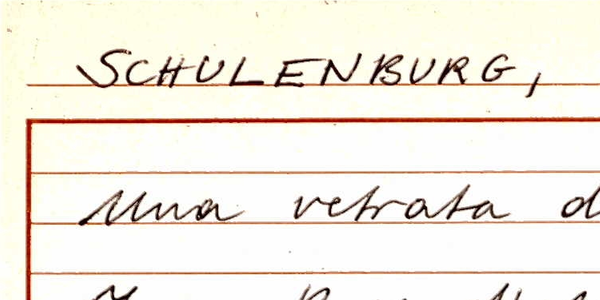 SCHULENBURG,
Una vetrata d